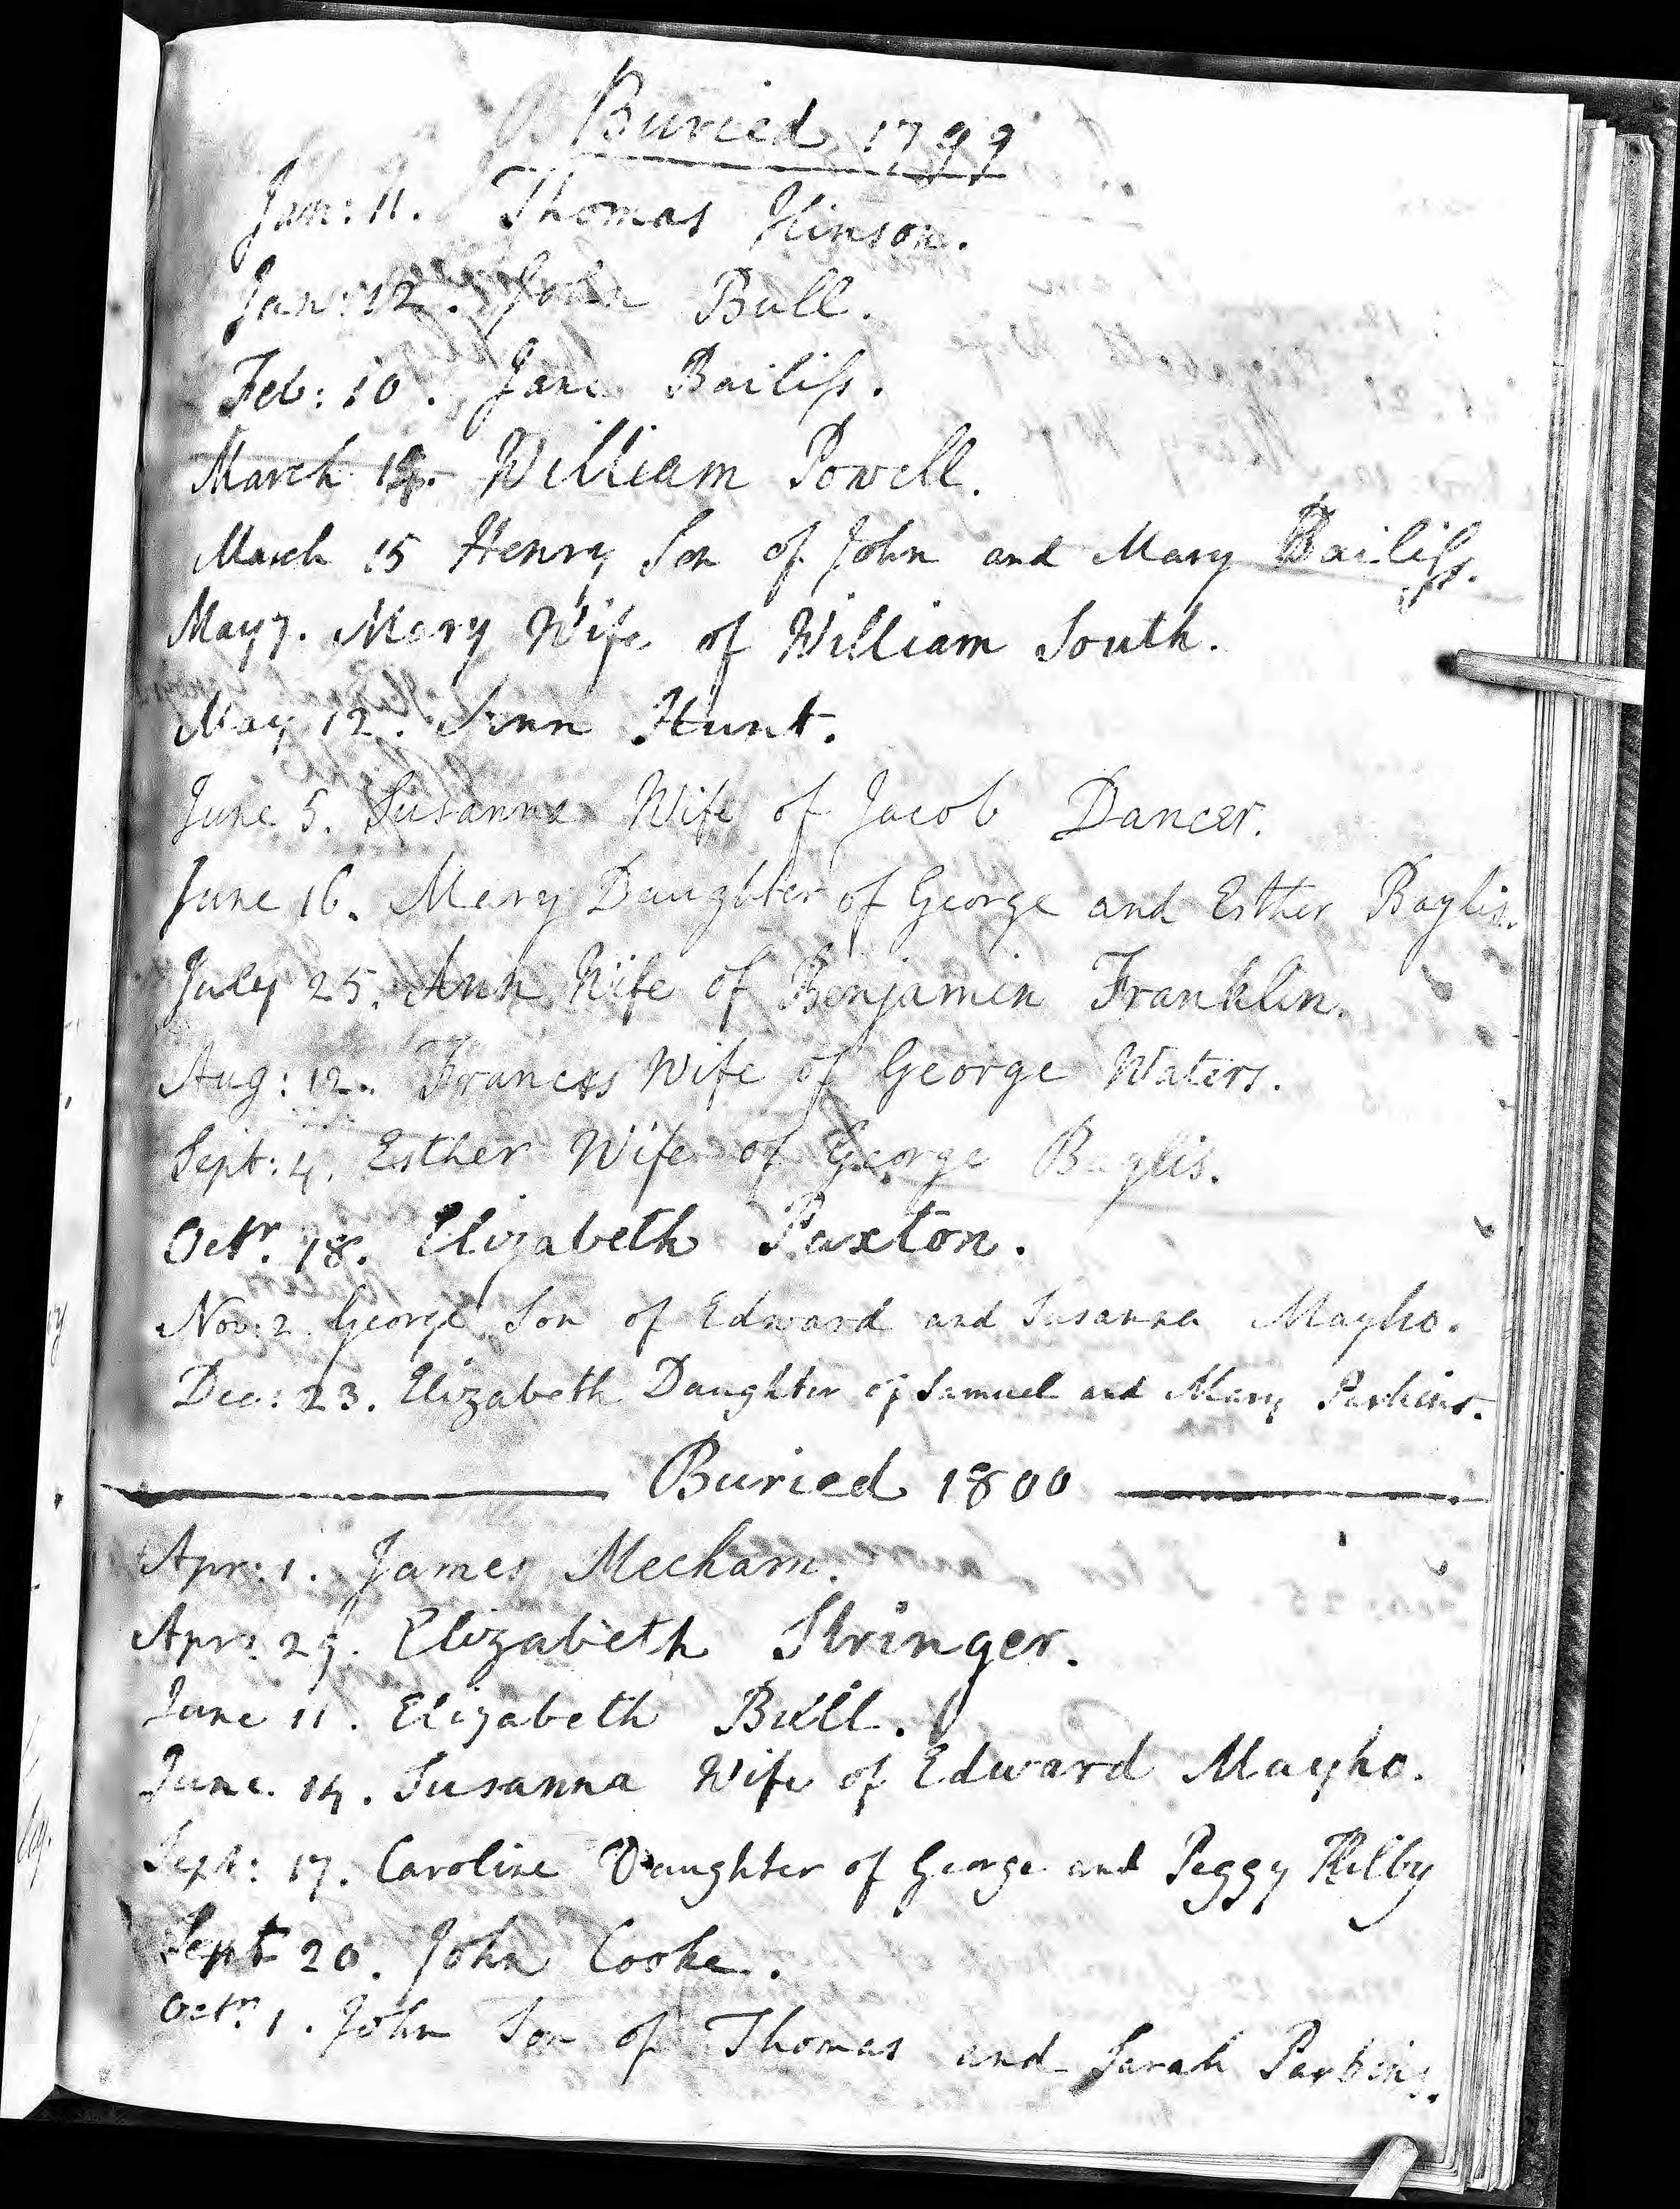 Buried 1799
Jan: 11. Thomas Hinson.
Jan: 12. John Bull.
Feb: 10. Jane Bailiss.
March 14. William Powell.
March 15 Henry Son of John and Mary Bailiss.
May 7. Mary Wife of William South.
May 12. Ann Hunt.
June 5. Susanna Wife of Jacob Dancer.
June 16. Mary Daughter of George and Esther Baylis.
July 25. Ann Wife of Benjamin Franklin.
Aug: 12. Frances Wife of George Waters.
Sept: 4. Esther Wife of George Baylis.
Octr. 18. Elizabeth Paxton.
Nov: 2. George Son of Edward and Susanna Mayho.
Dec: 23. Elizabeth Daughter of Samuel and Mary Parkins.
Buried 1800
Apr: 1. James Mecham.
Apr: 29. Elizabeth Stringer.
June 11. Elizabeth Bull.
June. 14. Susanna Wife of Edward Mayho.
Sept: 17. Caroline Daughter of George and Peggy Kilby
Sept 20. John Cooke.
Octr. 1. John Son of Thomas and Sarah Parkins.